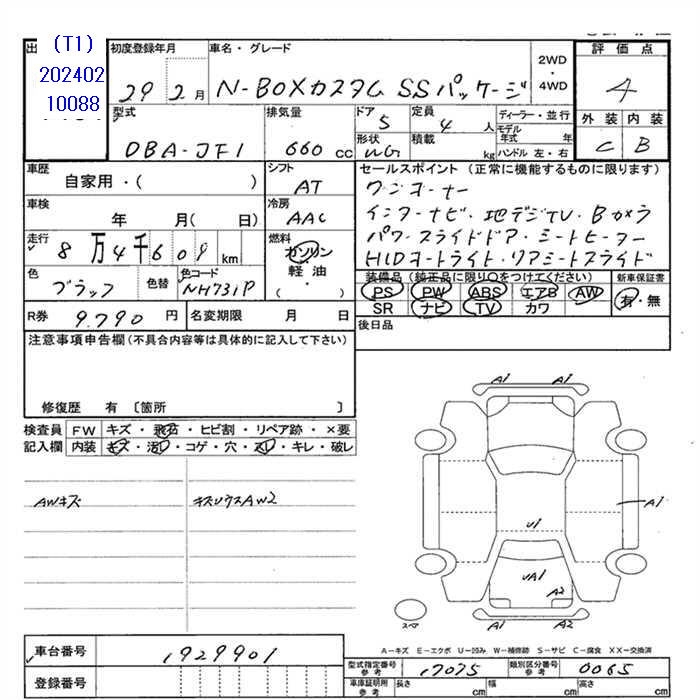 出
(T1)
202402
10088
初度登録年月
29 2 月
車名・グレード
N-BOXカスタム SSパッケージ
2WD
・
4WD
評価点
4
外装 内装
C B
型式
DBA-JF1
排気量
660 cc
ドア
5
定員
4 人
形状
WG
積載
kg
ディーラー・並行
モデル
年式 年
ハンドル 左・右
車歴
自家用・( )
シフト
AT
車検
年 月( 日)
冷房
AAC
走行
8 万 4 千 609 km
燃料
ガソリン
軽油
( )
色
ブラック
色替
色コード
NH731P
セールスポイント (正常に機能するものに限ります)
ワンオーナー
インターナビ・地デジTV・Bカメラ
パワースライドドア・シートヒーター
HIDオートライト・リアシートスライド
装備品 (純正品に限り○をつけてください)
PS PW ABS エアB AW
SR ナビ TV カワ
新車保証書
有・無
R券 9,790 円
名変期限 月 日
後日品
注意事項申告欄(不具合内容等は具体的に記入して下さい)
修復歴 有 〔箇所 〕
検査員
記入欄
FW キズ・飛石・ヒビ割・リペア跡・×要
内装 キズ・汚レ・コゲ・穴・スレ・キレ・破レ
AWキズ
A1 A1
A1
U1
UA1
A2
A1 A2
スペア
A-キズ E-エクボ U-凹み W-補修跡 S-サビ C-腐食 XX-交換済
車台番号 1929901
登録番号
型式指定番号
参考
17075
類別区分番号
参考
0065
車庫証明用
参考
長さ cm 幅 cm 高さ cm